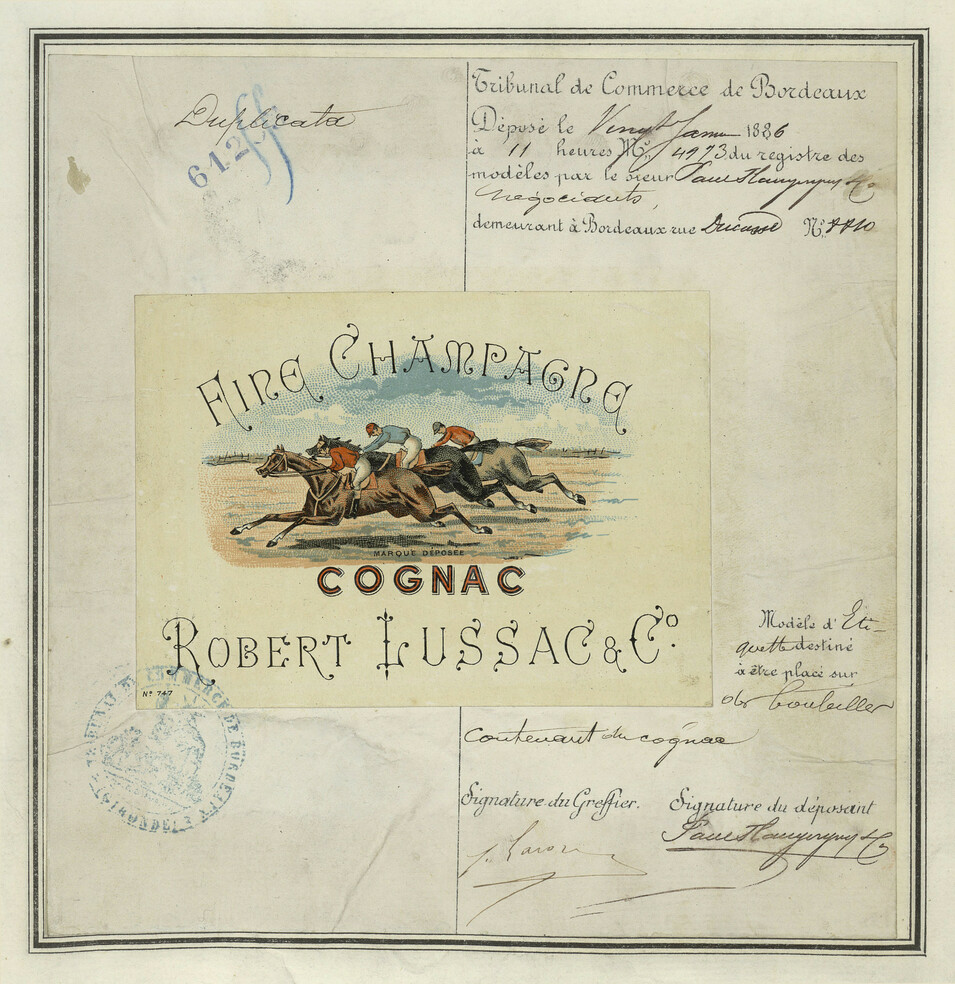 Duplicata
612
Tribunal de Commerce de Bordeaux
Déposé le Vingt Janv 1886
à 11 heures No. 4973 du registre des
modèles par le sieur Paul
négociants,
demeurant à Bordeaux rue Ducasse No.
FINE CHAMPAGNE
MARQUE DÉPOSÉE
COGNAC
ROBERT LUSSAC & Co.
No 747
Modèle d'Eti-
quette destiné
à être placé sur
des bouteilles
contenant du cognac
TRIBUNAL DE COMMERCE DE BORDEAUX
(GIRONDE)
Signature du Greffier. Signature du déposant
Paul